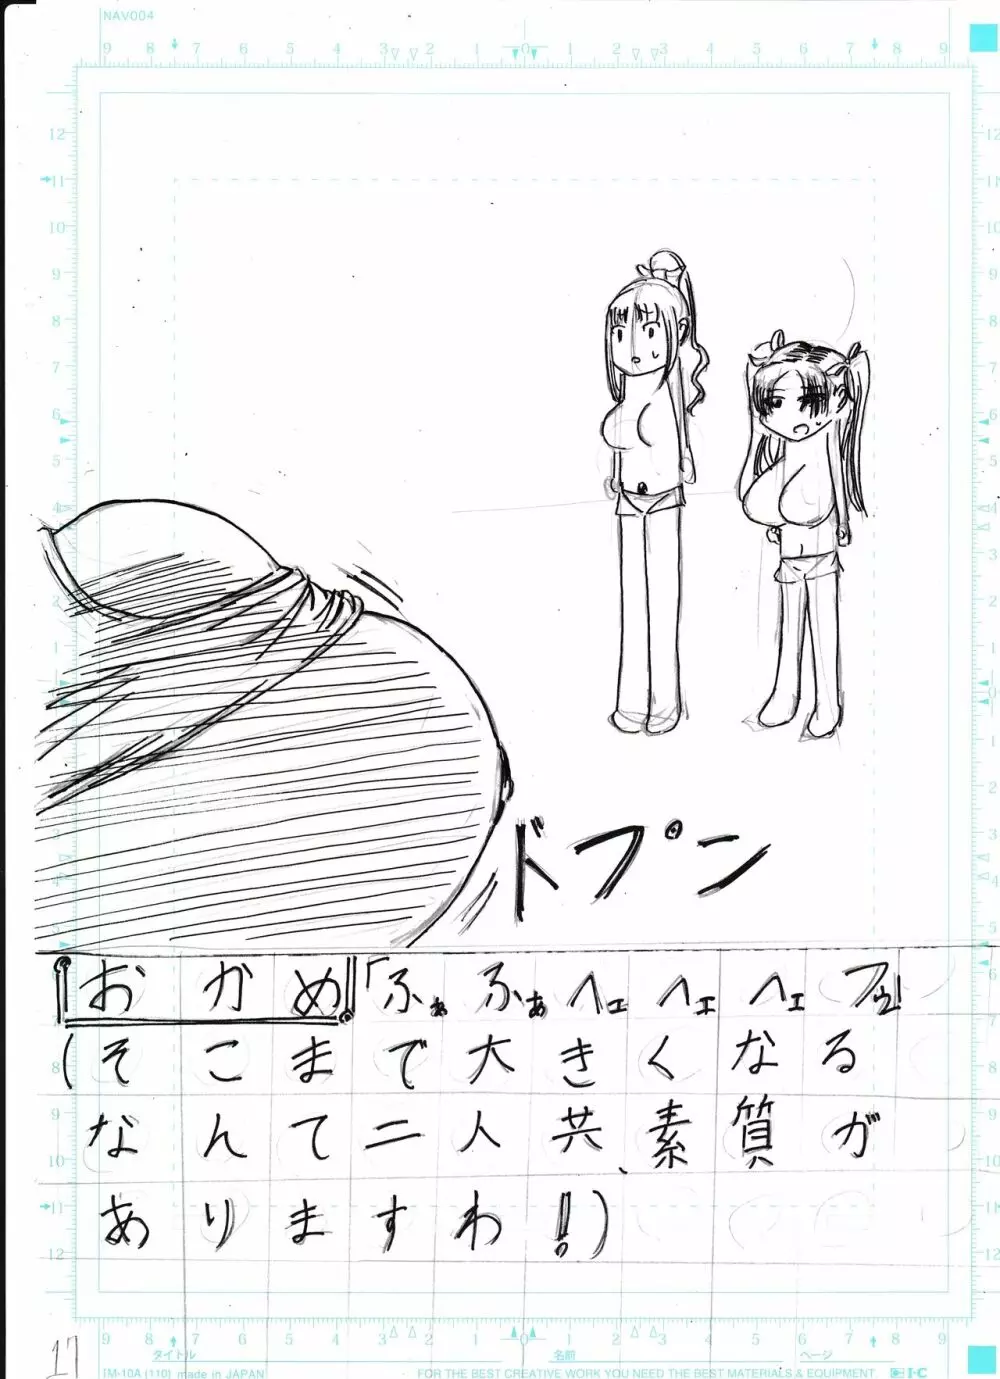 NAV004
9 8 7 6 5 4 3 2 0 1 2 3 4 5 6 7 8 9
ドプン
おかめ「ふぁふぁヘェヘェヘェフゥ」
(そこまで大きくなる
なんて二人共、素質が
ありますわ!!)
9 8 7 6 5 4 3 2 0 1 2 3 4 5 6 7 8 9
タイトル 名前 ページ
IM-10A (110) made in JAPAN FOR THE BEST CREATIVE WORK YOU NEED THE BEST MATERIALS & EQUIPMENT. I·C
17